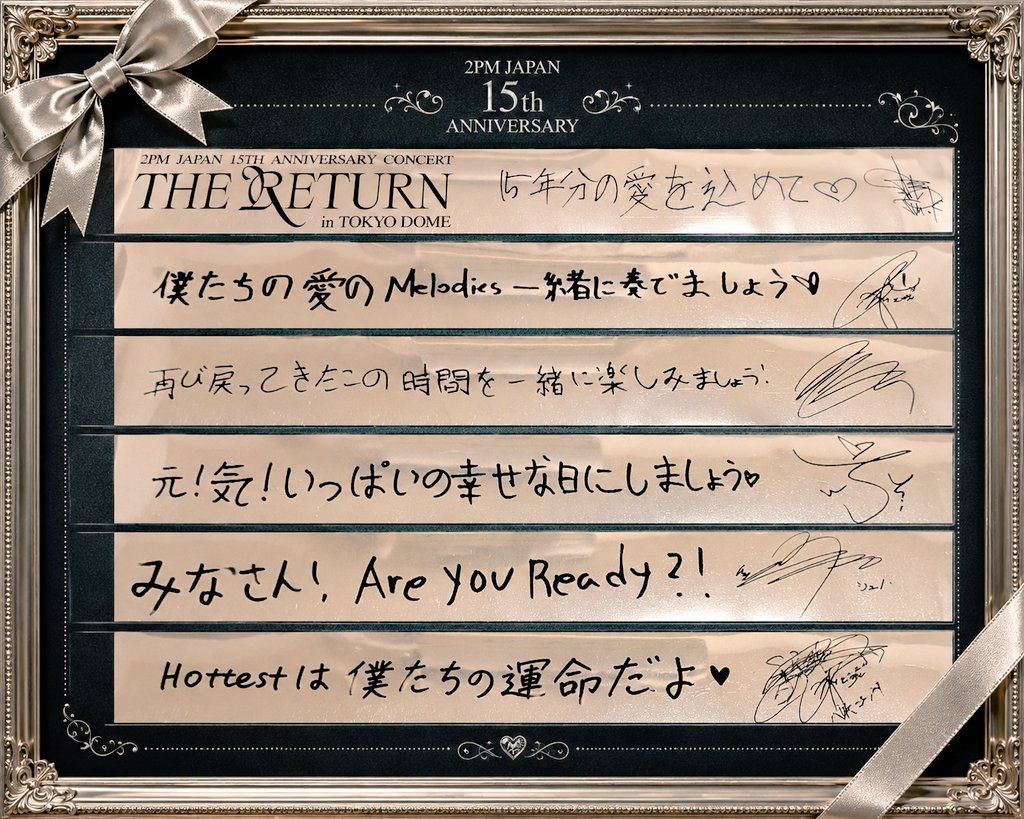 2PM JAPAN
15th
ANNIVERSARY
2PM JAPAN 15TH ANNIVERSARY CONCERT
THE RETURN
in TOKYO DOME
15年分の愛を込めて♡
僕たちの愛の Melodies 一緒に奏でましょう♡
再び戻ってきたこの時間を一緒に楽しみましょう.
元!気!いっぱいの幸せな日にしましょう♡
みなさん! Are you Ready?!
Hottestは僕たちの運命だよ♥